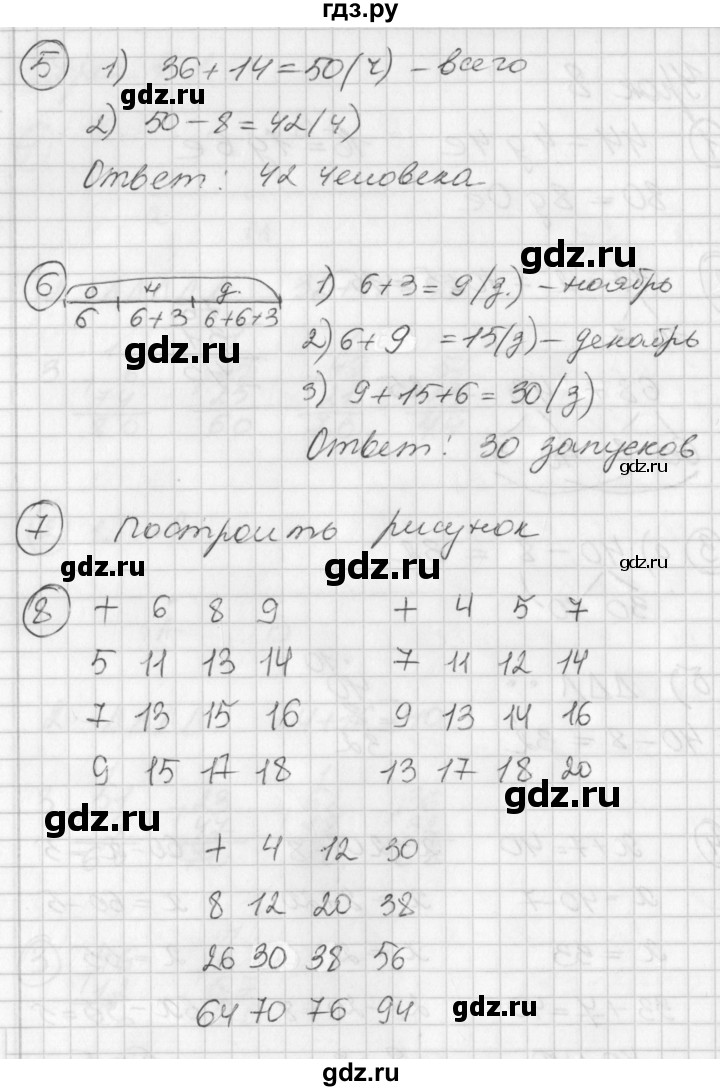 гдз.ру
5 1) 36+14=50(ч) - всего
gdz.ru
2) 50-8=42(ч)
Ответ: 42 человека
gdz.ru
6 о н д.
6 6+3 6+6+3
1) 6+3=9(з.) - ноябрь
2) 6+9 =15(з) - декабрь
gdz.ru
3) 9+15+6=30(з)
Ответ: 30 запусков
gdz.ru
7 построить рисунок
gdz.ru gdz.ru gdz.ru
8 + 6 8 9 + 4 5 7
5 11 13 14 7 11 12 14
7 13 15 16 9 13 14 16
9 15 17 18 13 17 18 20
gdz.ru gdz.ru
+ 4 12 30
8 12 20 38
26 30 38 56
64 70 76 94
gdz.ru
gdz.ru